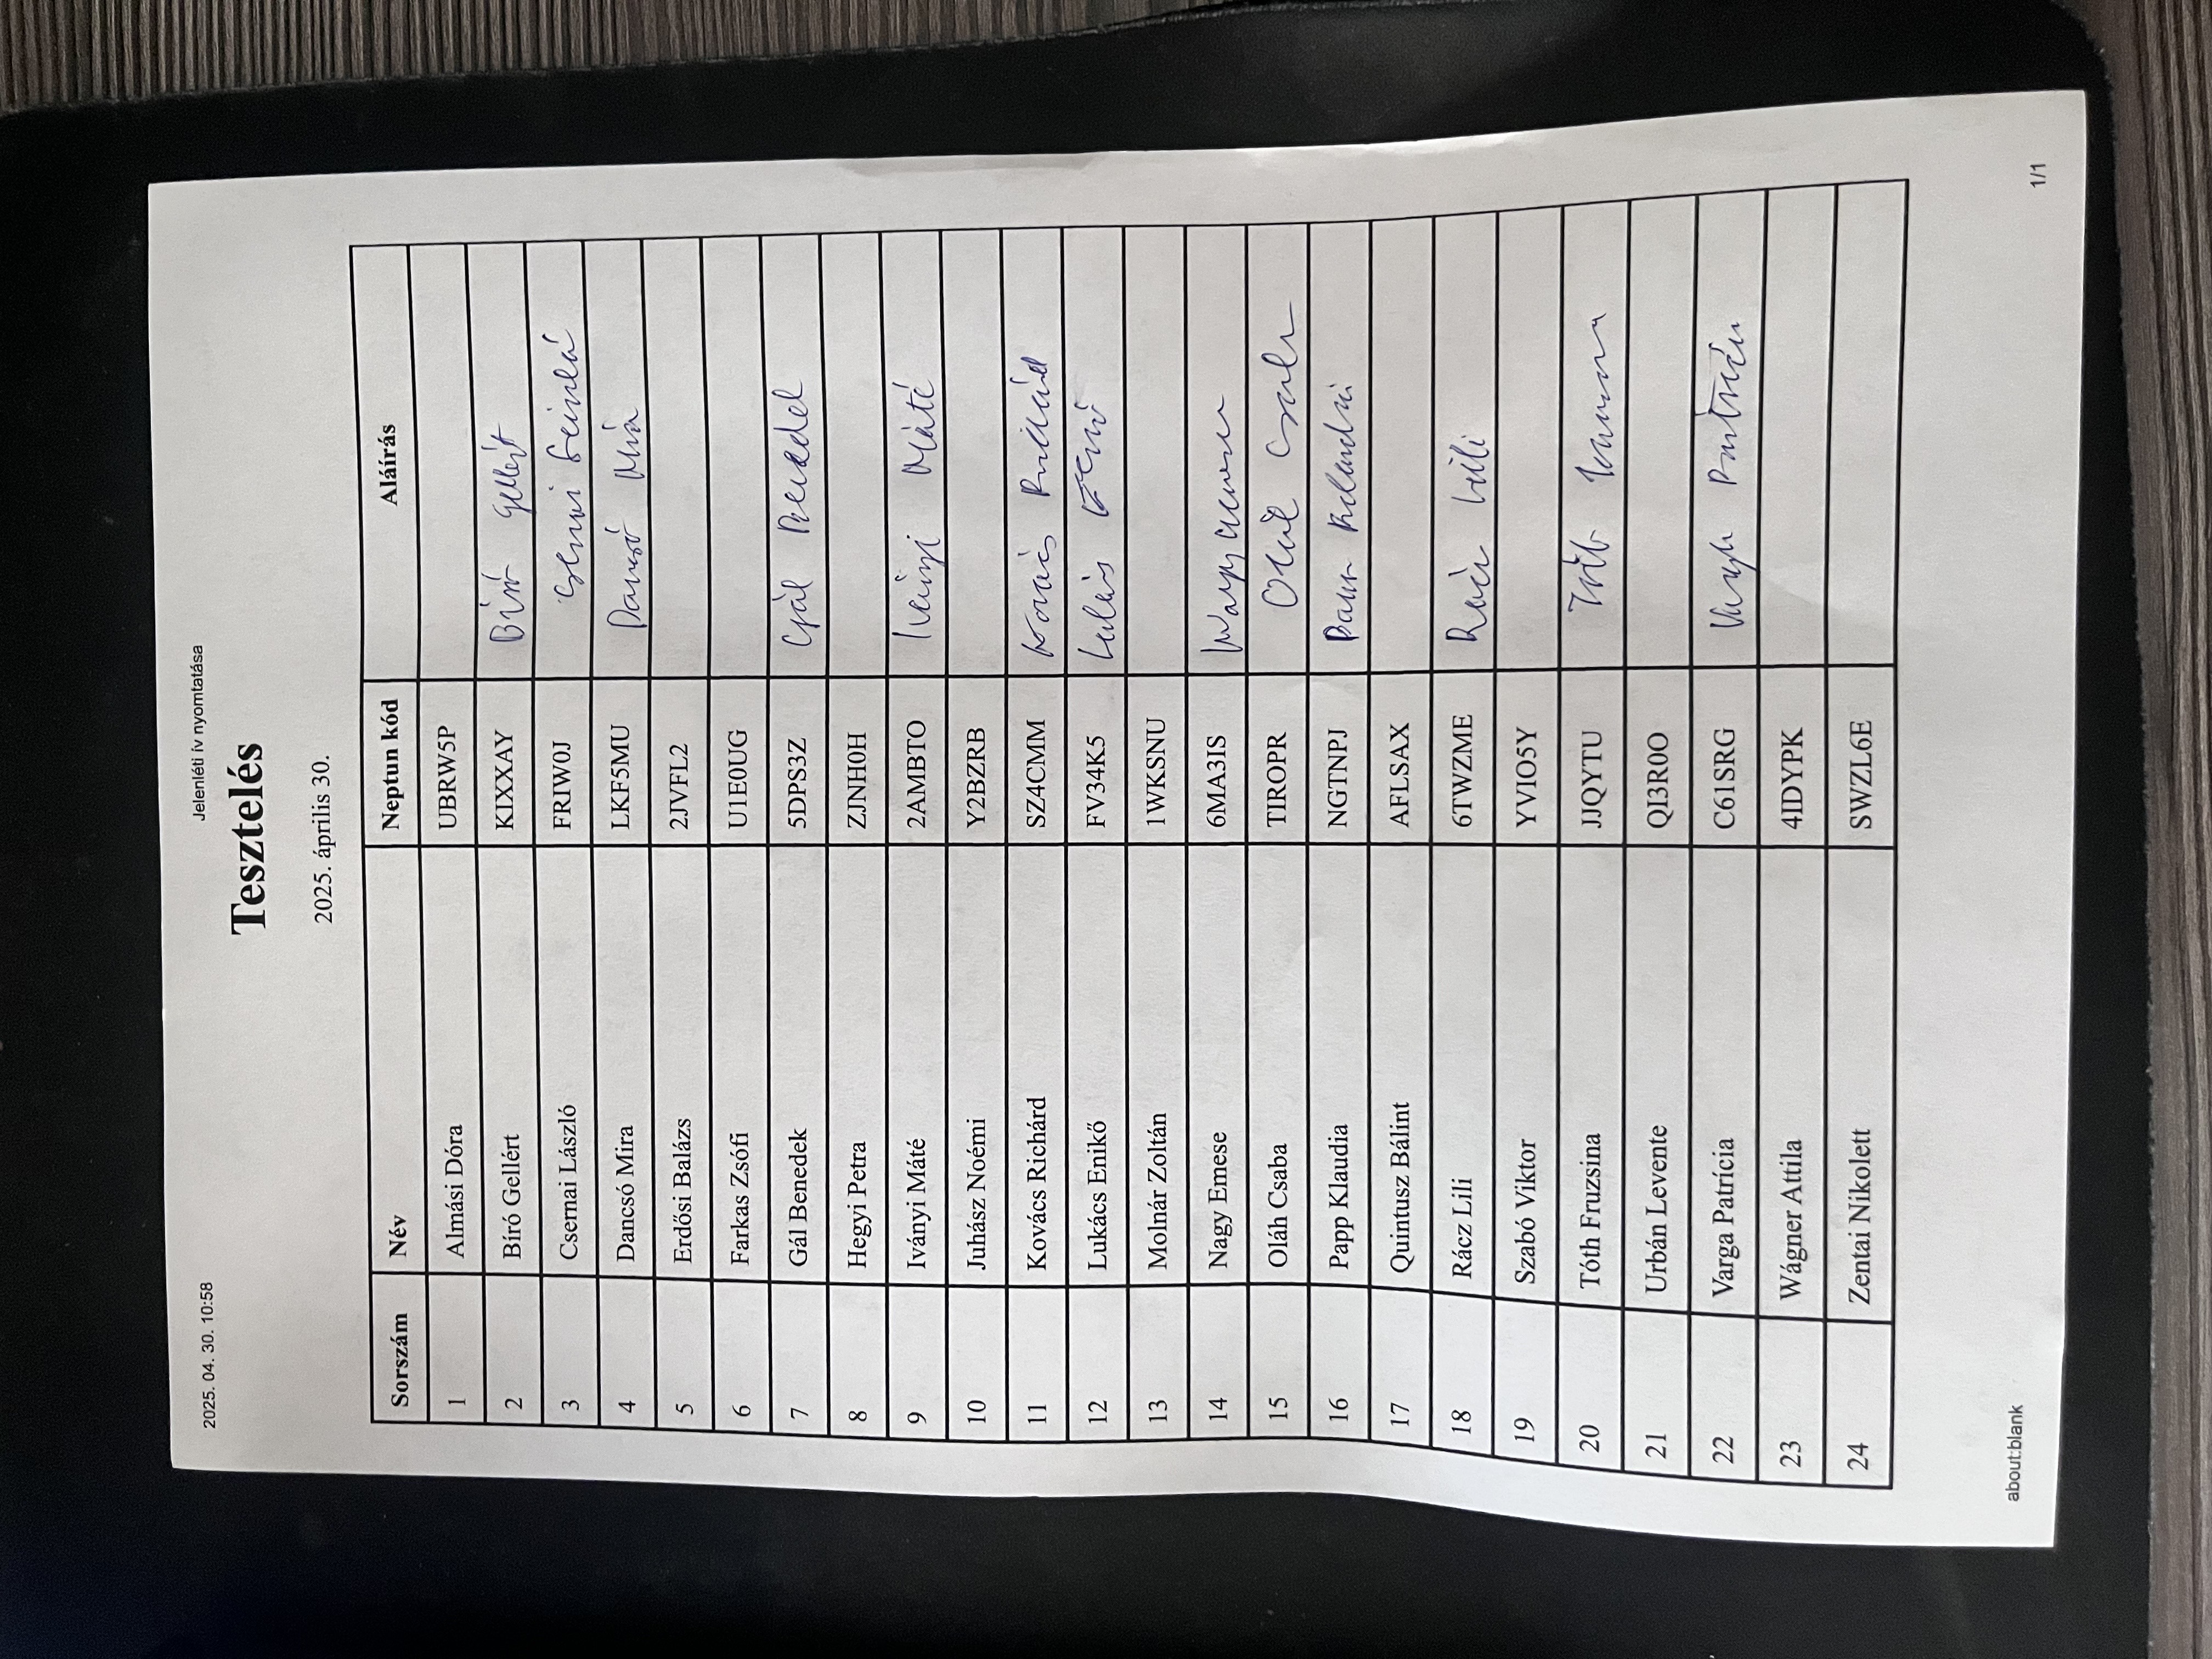 2025. 04. 30. 10:58 Jelenléti ív nyomtatása
Tesztelés
2025. április 30.
Sorszám Név Neptun kód Aláírás
1 Almási Dóra UBRW5P
2 Bíró Gellért KIXXAY Bíró Gellért
3 Csernai László FRIW0J
4 Dancsó Mira LKF5MU Dancsó
5 Erdősi Balázs 2JVFL2
6 Farkas Zsófi U1E0UG
7 Gál Benedek 5DPS3Z Gál
8 Hegyi Petra ZJNH0H
9 Iványi Máté 2AMBTO Iványi Máté
10 Juhász Noémi Y2BZRB
11 Kovács Richárd SZ4CMM Kovács Richárd
12 Lukács Enikő FV34K5
13 Molnár Zoltán 1WKSNU
14 Nagy Emese 6MA3IS
15 Oláh Csaba TIROPR
16 Papp Klaudia NGTNPJ
17 Quintusz Bálint AFLSAX
18 Rácz Lili 6TWZME Rácz Lili
19 Szabó Viktor YVIO5Y
20 Tóth Fruzsina JJQYTU Tóth
21 Urbán Levente QI3R0O
22 Varga Patrícia C61SRG
23 Wágner Attila 4IDYPK
24 Zentai Nikolett SWZL6E
about:blank 1/1